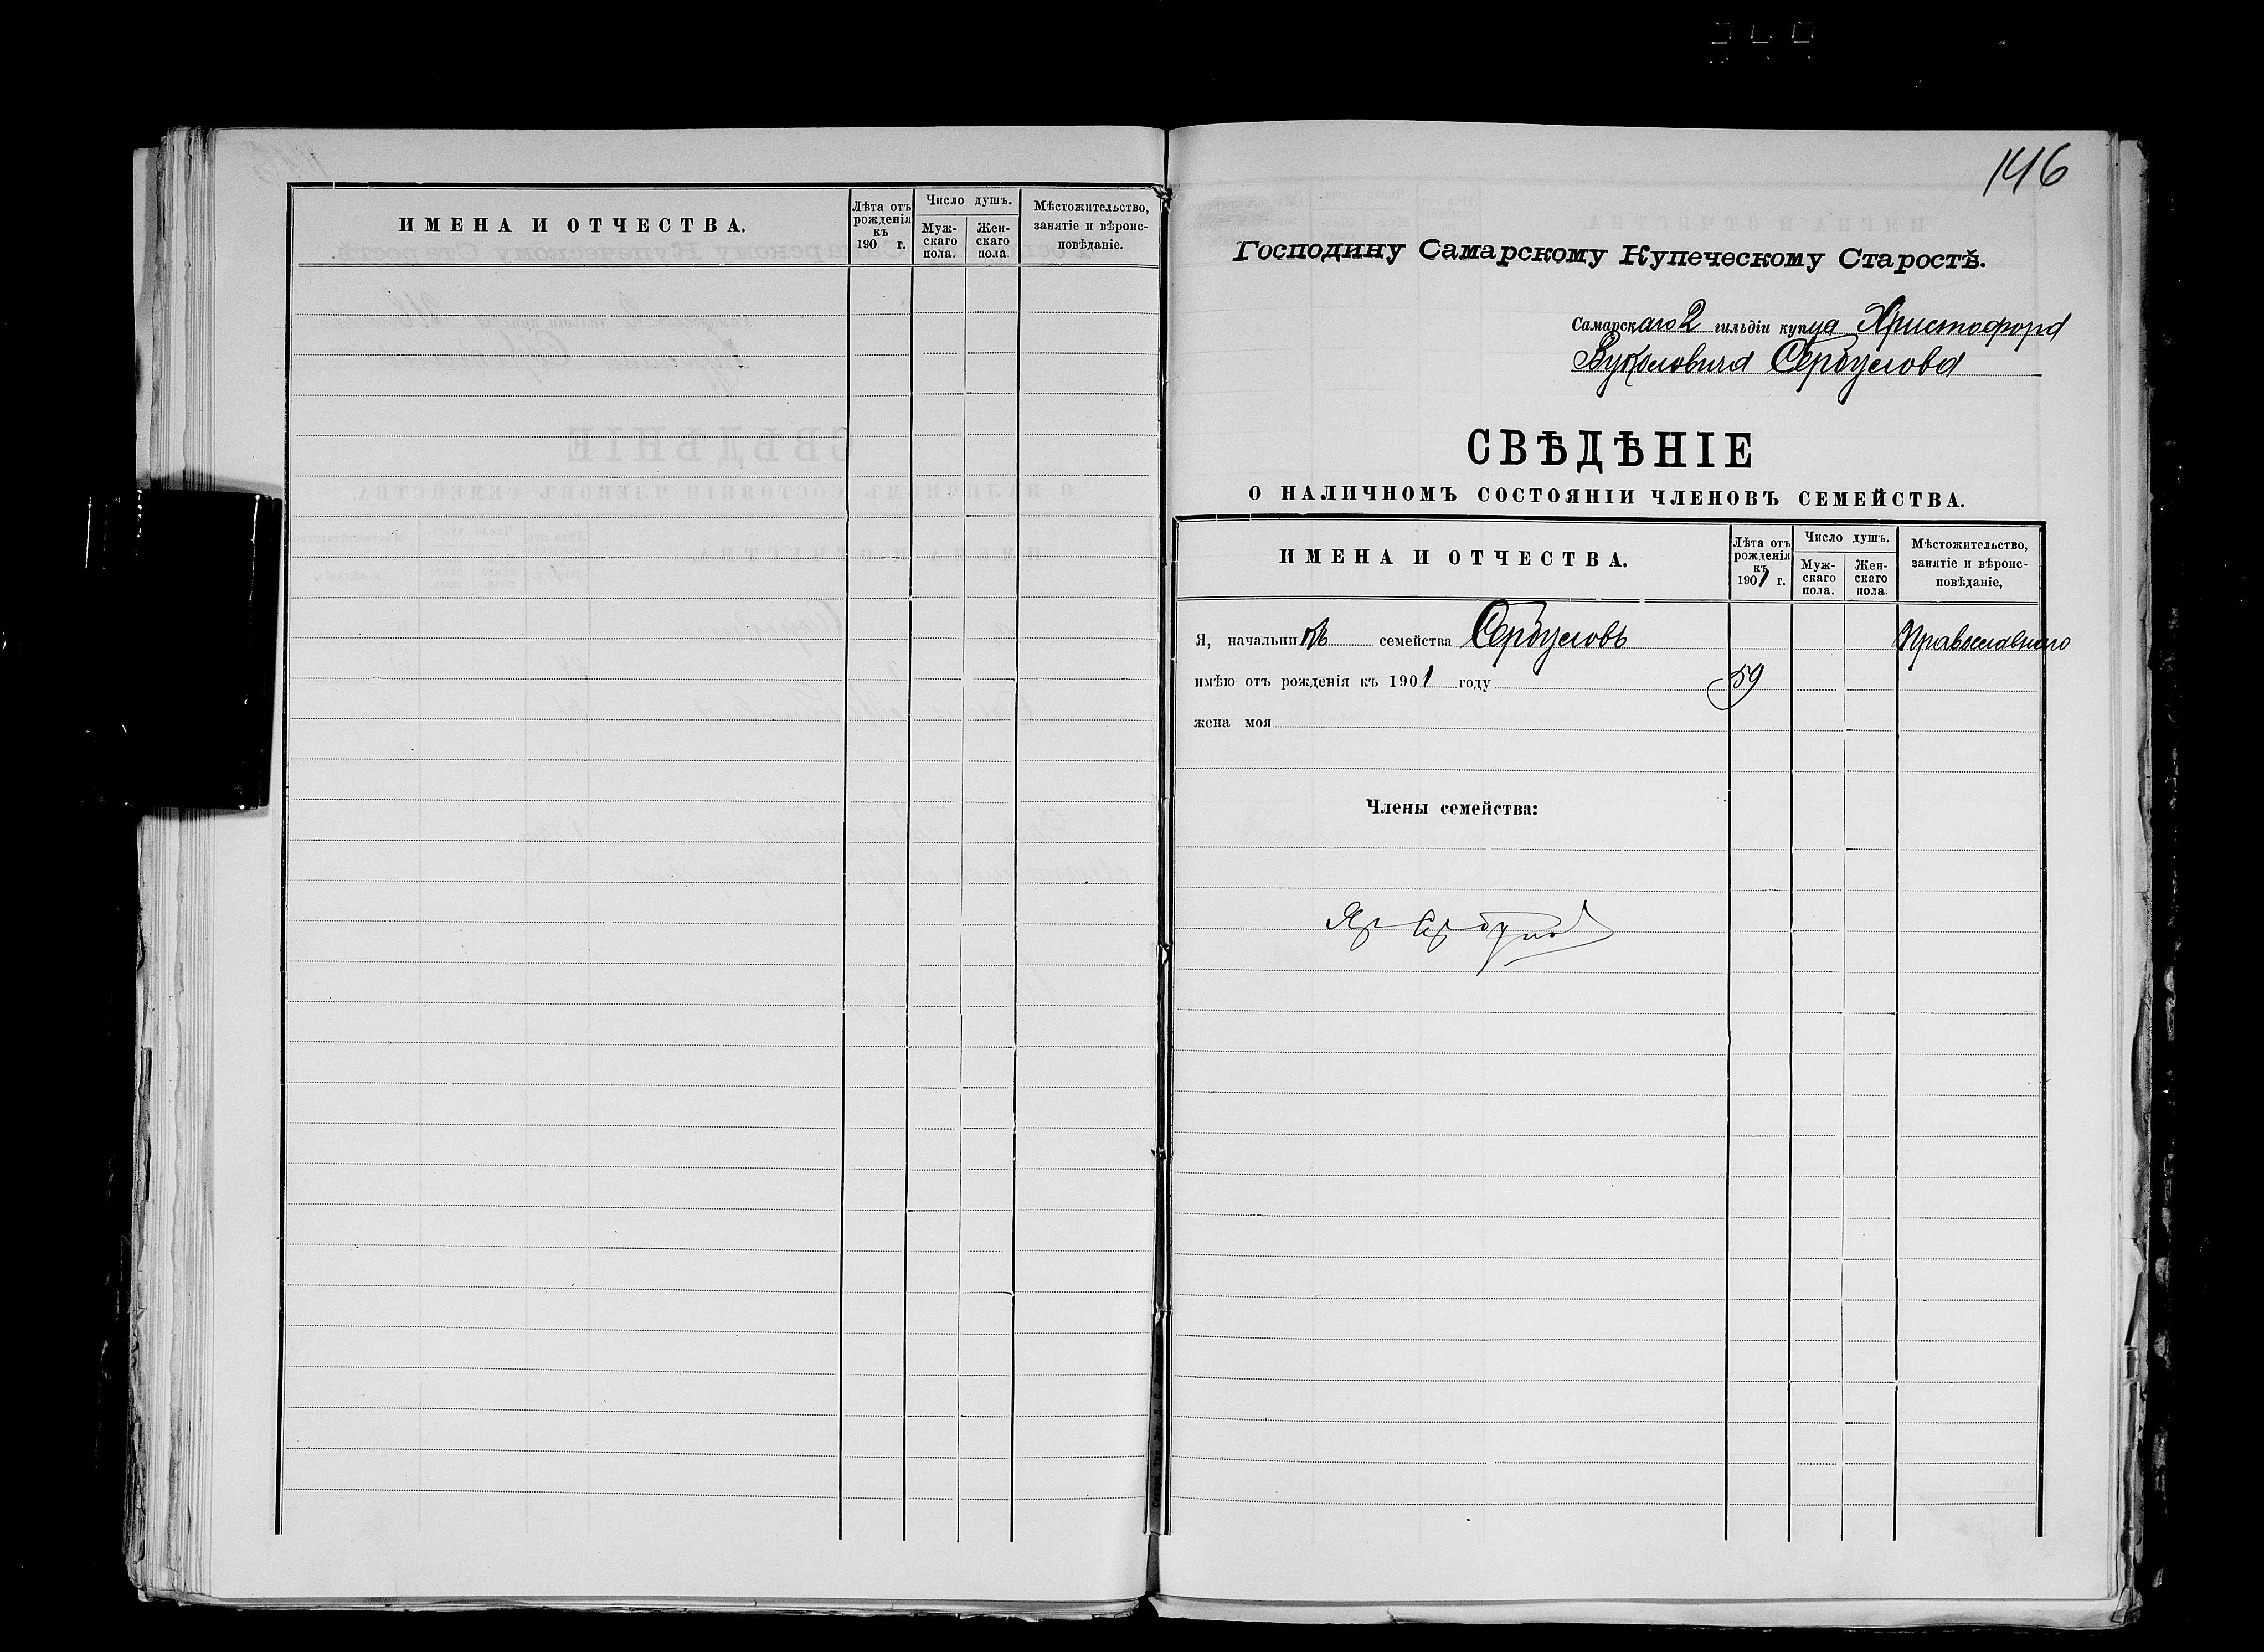 ИМЕНА И ОТЧЕСТВА.
Лѣта отъ рожденія къ 190 г.
Число душъ.
Мужскаго пола.
Женскаго пола.
Мѣстожительство, занятіе и вѣроисповѣданіе.
146
Господину Самарскому Купеческому Старостѣ.
Самарскаго 2 гильдіи купца Христофора
Вуколовича Сербулова
СВѢДѢНІЕ
О НАЛИЧНОМЪ СОСТОЯНІИ ЧЛЕНОВЪ СЕМЕЙСТВА.
ИМЕНА И ОТЧЕСТВА.
Лѣта отъ рожденія къ 1901 г.
Число душъ.
Мужскаго пола.
Женскаго пола.
Мѣстожительство, занятіе и вѣроисповѣданіе,
Я, начальникъ семейства Сербуловъ Православнаго
имѣю отъ рожденія къ 1901 году 59
жена моя
Члены семейства: